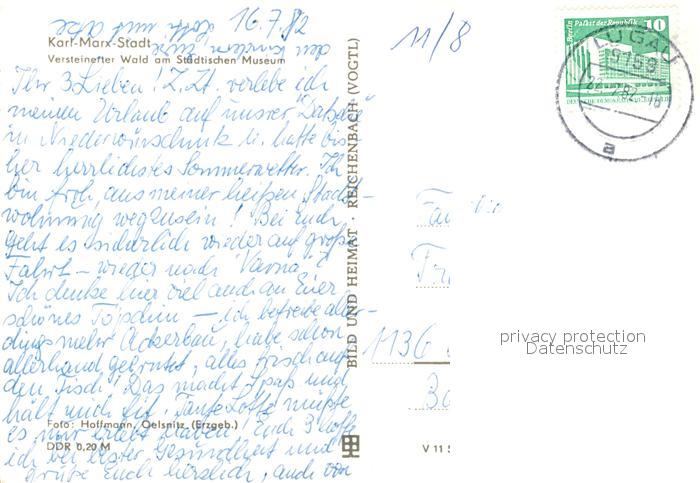 16.7.82
Karl-Marx-Stadt
Versteinerter Wald am Städtischen Museum
Ihr 3 Lieben! Z. Zt. verlebe ich
meinen Urlaub auf unsrer "Datsche"
in Niederwürschnitz u. hatte bis
her herrlichstes Sommerwetter. Ich
bin froh, aus meiner heißen Stadt-
wohnung wegzusein! Bei Euch
geht es sicherlich wieder auf große
Fahrt – wieder nach Varna?
Ich denke hier viel an Euer
schönes – ich betreibe aller-
dings mehr Ackerbau, habe schon
allerhand geerntet, alles frisch auf
den Tisch! Das macht Spaß und
hält mich fit. Tante Lotte müßte
es nur erlebt haben! Euch 3 hoffe
ich bei bester Gesundheit und
grüße Euch herzlich, auch von
Foto: Hoffmann, Oelsnitz (Erzgeb.)
DDR 0,20 M
BILD UND HEIMAT · REICHENBACH (VOGTL)
11/8
Berlin, Palast der Republik
10
DEUTSCHE DEMOKRATISCHE REPUBLIK
LUGAU
9159
22.-7.82.-18
a
Fa
Fr
1136
privacy protection
Datenschutz
V 11